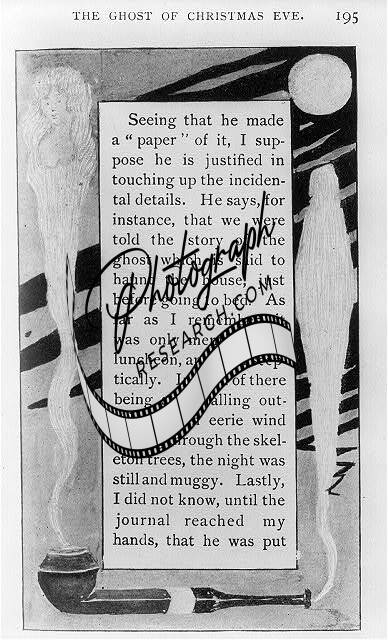 THE GHOST OF CHRISTMAS EVE. 195
Seeing that he made
a "paper" of it, I sup-
pose he is justified in
touching up the inciden-
tal details. He says, for
instance, that we were
told the story of the
ghost which is said to
haunt the house, just
before going to bed. As
far as I remember it
was only men
luncheon, an
tically. I of there
being alling out-
eerie wind
through the skel-
eton trees, the night was
still and muggy. Lastly,
I did not know, until the
journal reached my
hands, that he was put
Photograph
RESEARCH.COM